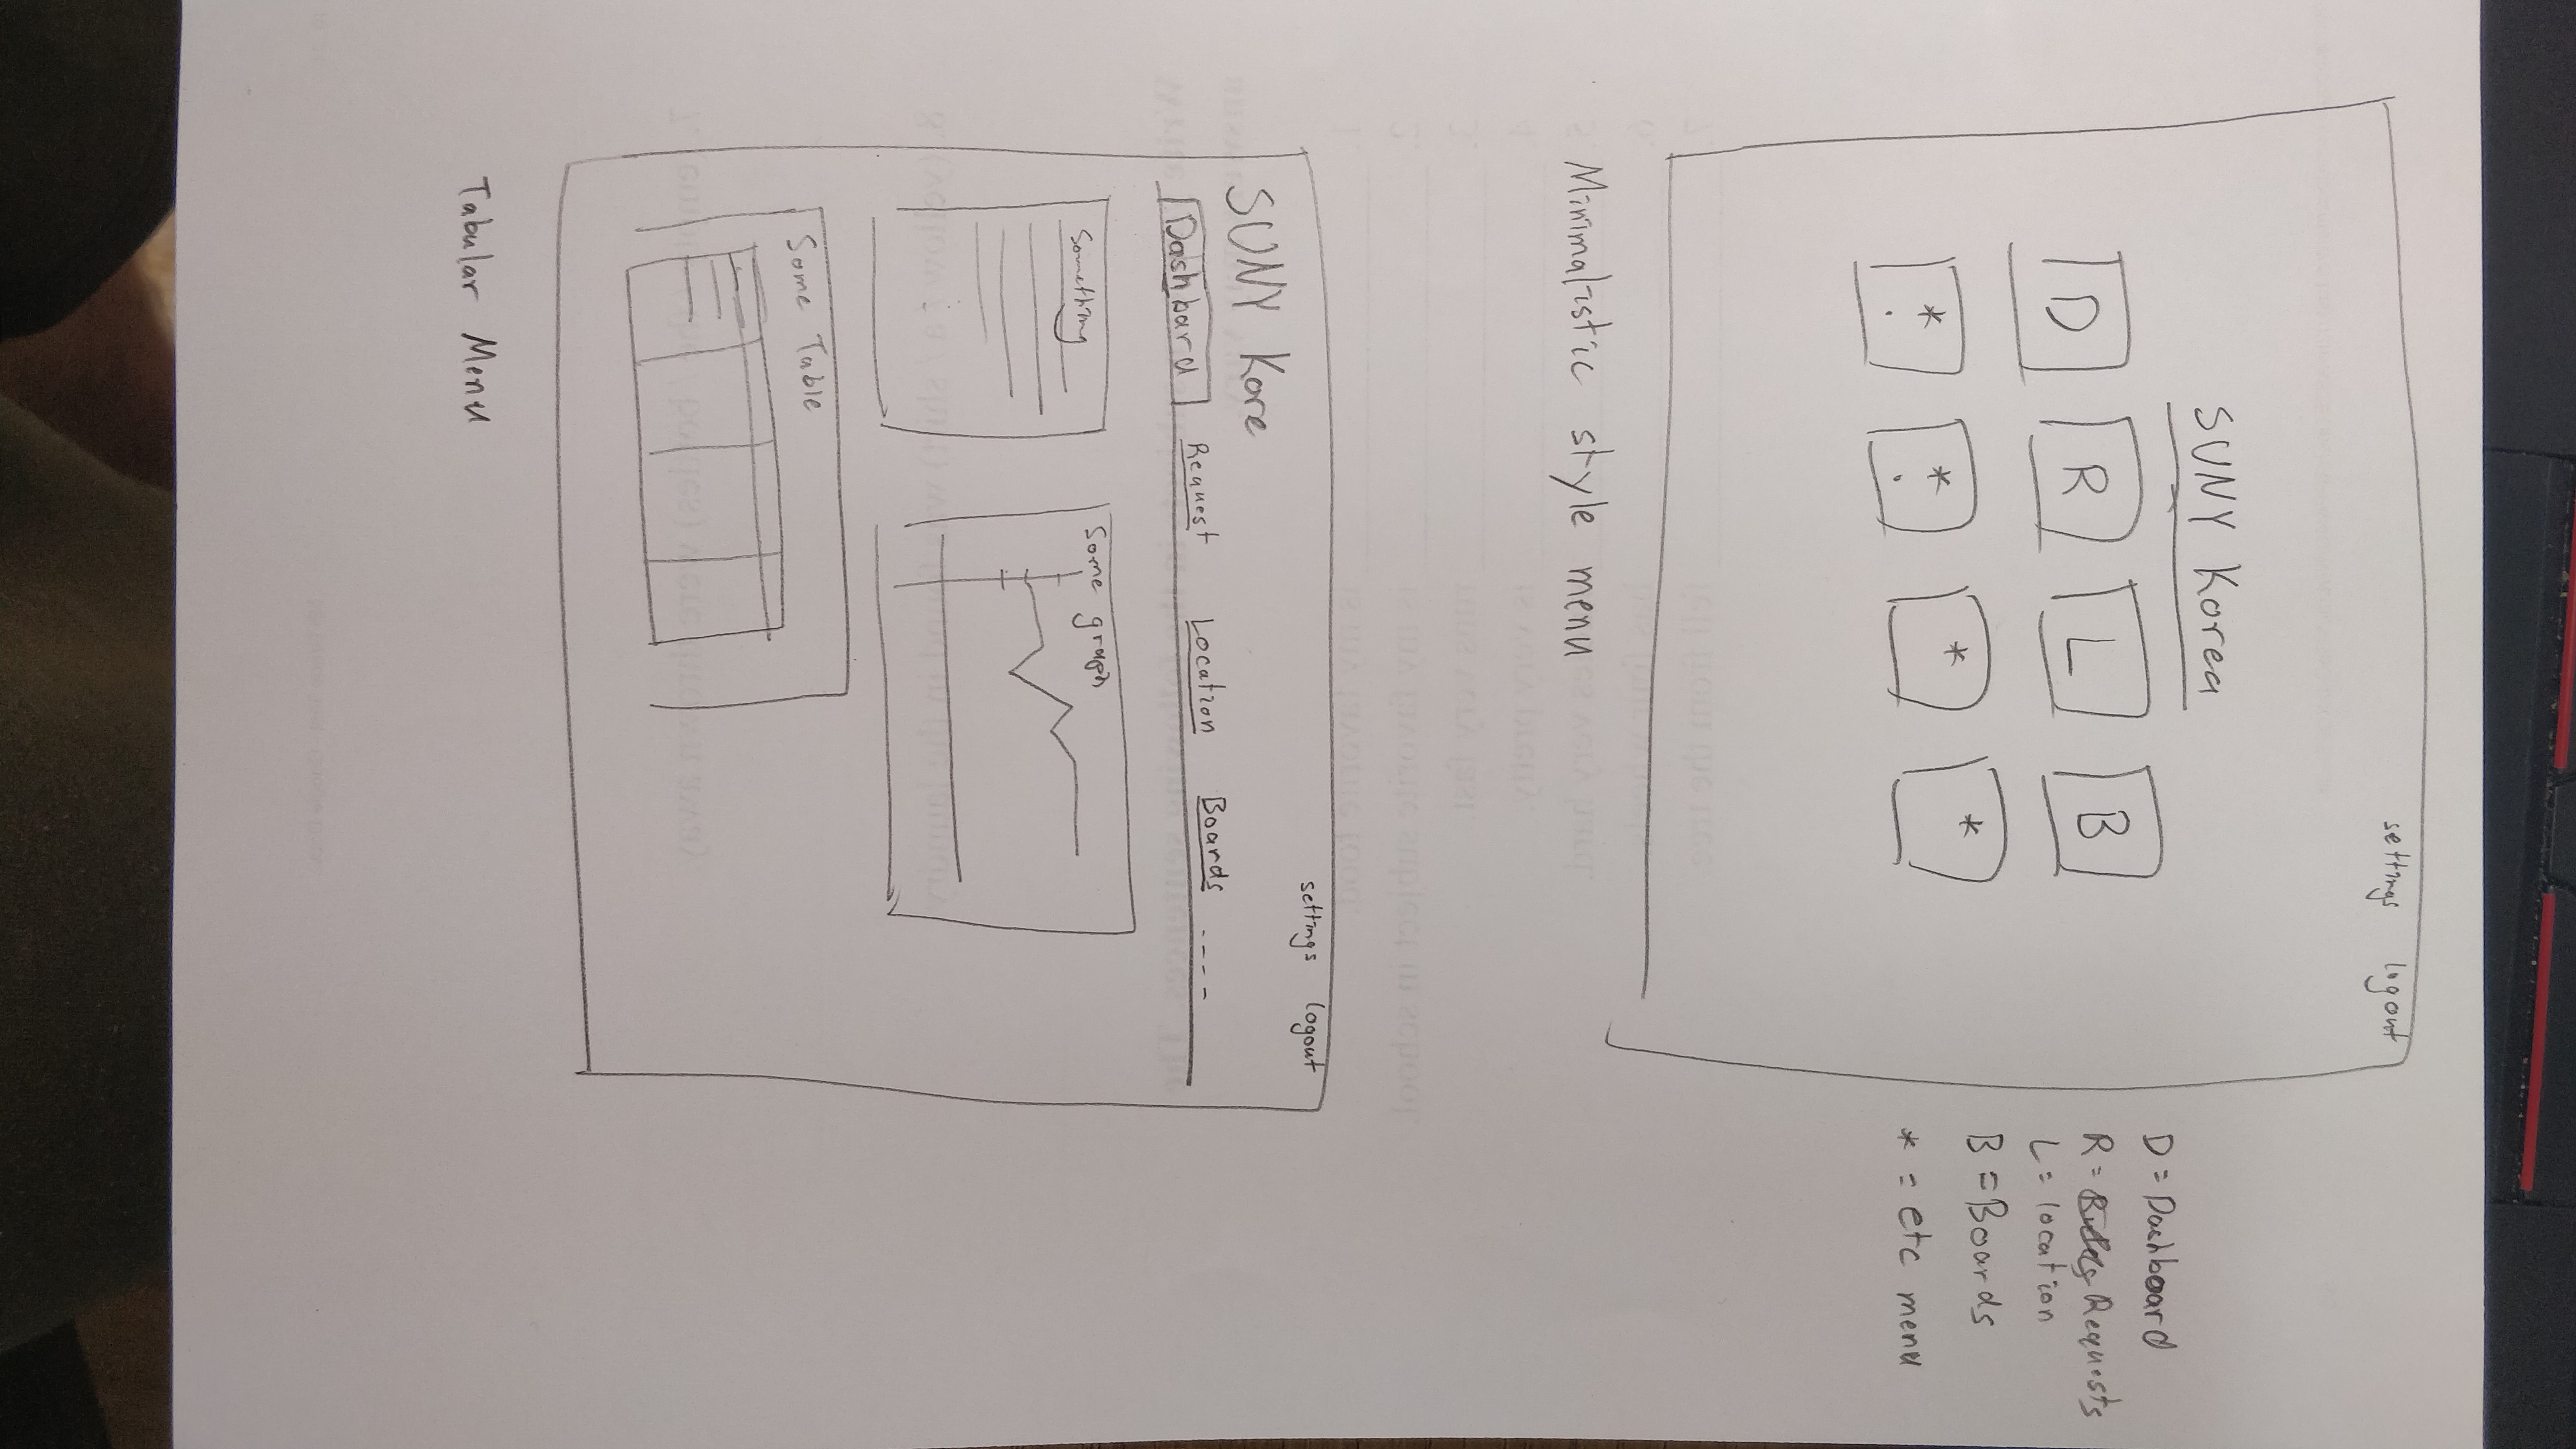 settings logout
SUNY Korea
D R L B
* * * *
D = Dashboard
R = Requests
L = location
B = Boards
* = etc menu
Minimalistic style menu
settings logout
SUNY Kore
Dashboard Request Location Boards ----
Something
Some graph
Some Table
Tabular Menu